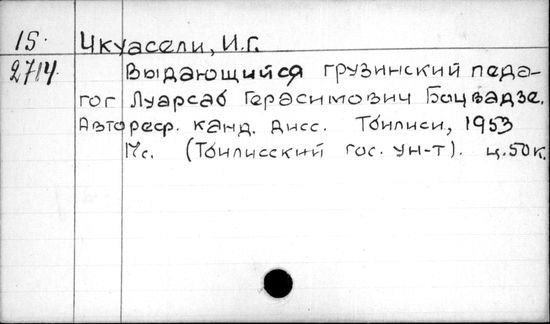 15. Чкуасели, И.Г.
2714. Выдающийся грузинский педа-
гог Луарсаб Герасимович Боцвадзе.
Автореф. канд. дисс. Тбилиси, 1953
17с. (Тбилисский гос. ун-т). ц.50к.